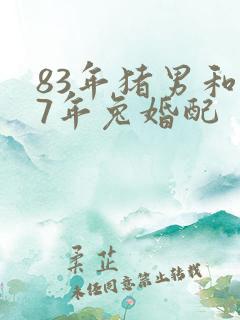 83年猪男和
7年兔婚配
柔芷
未经同意禁止转载